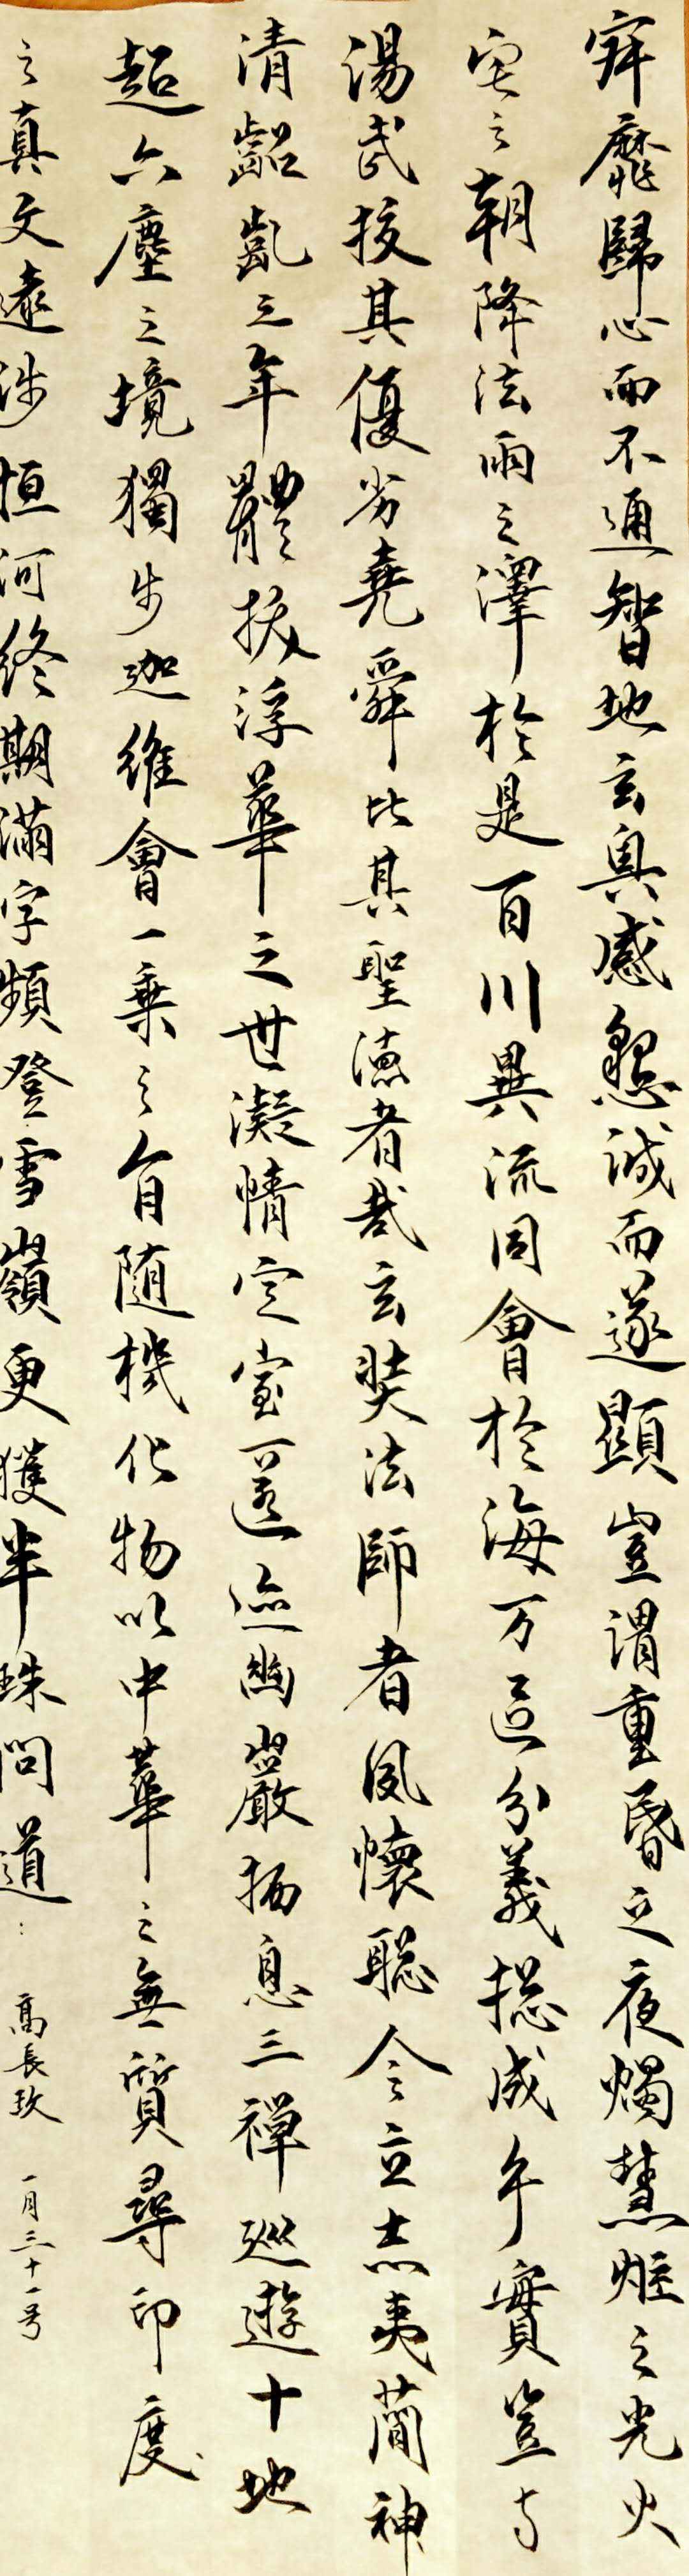 寂靡歸心而不通智地玄奧感懇誠而遂顯豈謂重昏之夜燭慧炬之光火
宅之朝降法雨之澤於是百川異流同會於海万區分義揔成乎實豈与
湯武挍其優劣堯舜比其聖德者哉玄奘法師者夙懷聡令立志夷簡神
清齠齓之年體拔浮華之世凝情定室匿迹幽巖栖息三禪巡遊十地
超六塵之境獨步迦維會一乘之旨随機化物以中華之無質尋印度
之真文遠涉恒河終期滿字頻登雪嶺更獲半珠問道：
高長玫 一月三十一号